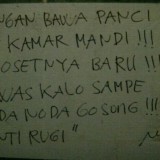 NGAN BAWA PANCI
KAMAR MANDI !!!
OSETNYA BARU !!!
WAS KALO SAMPE
DA NODA GOSONG !!!
NTI RUGI "